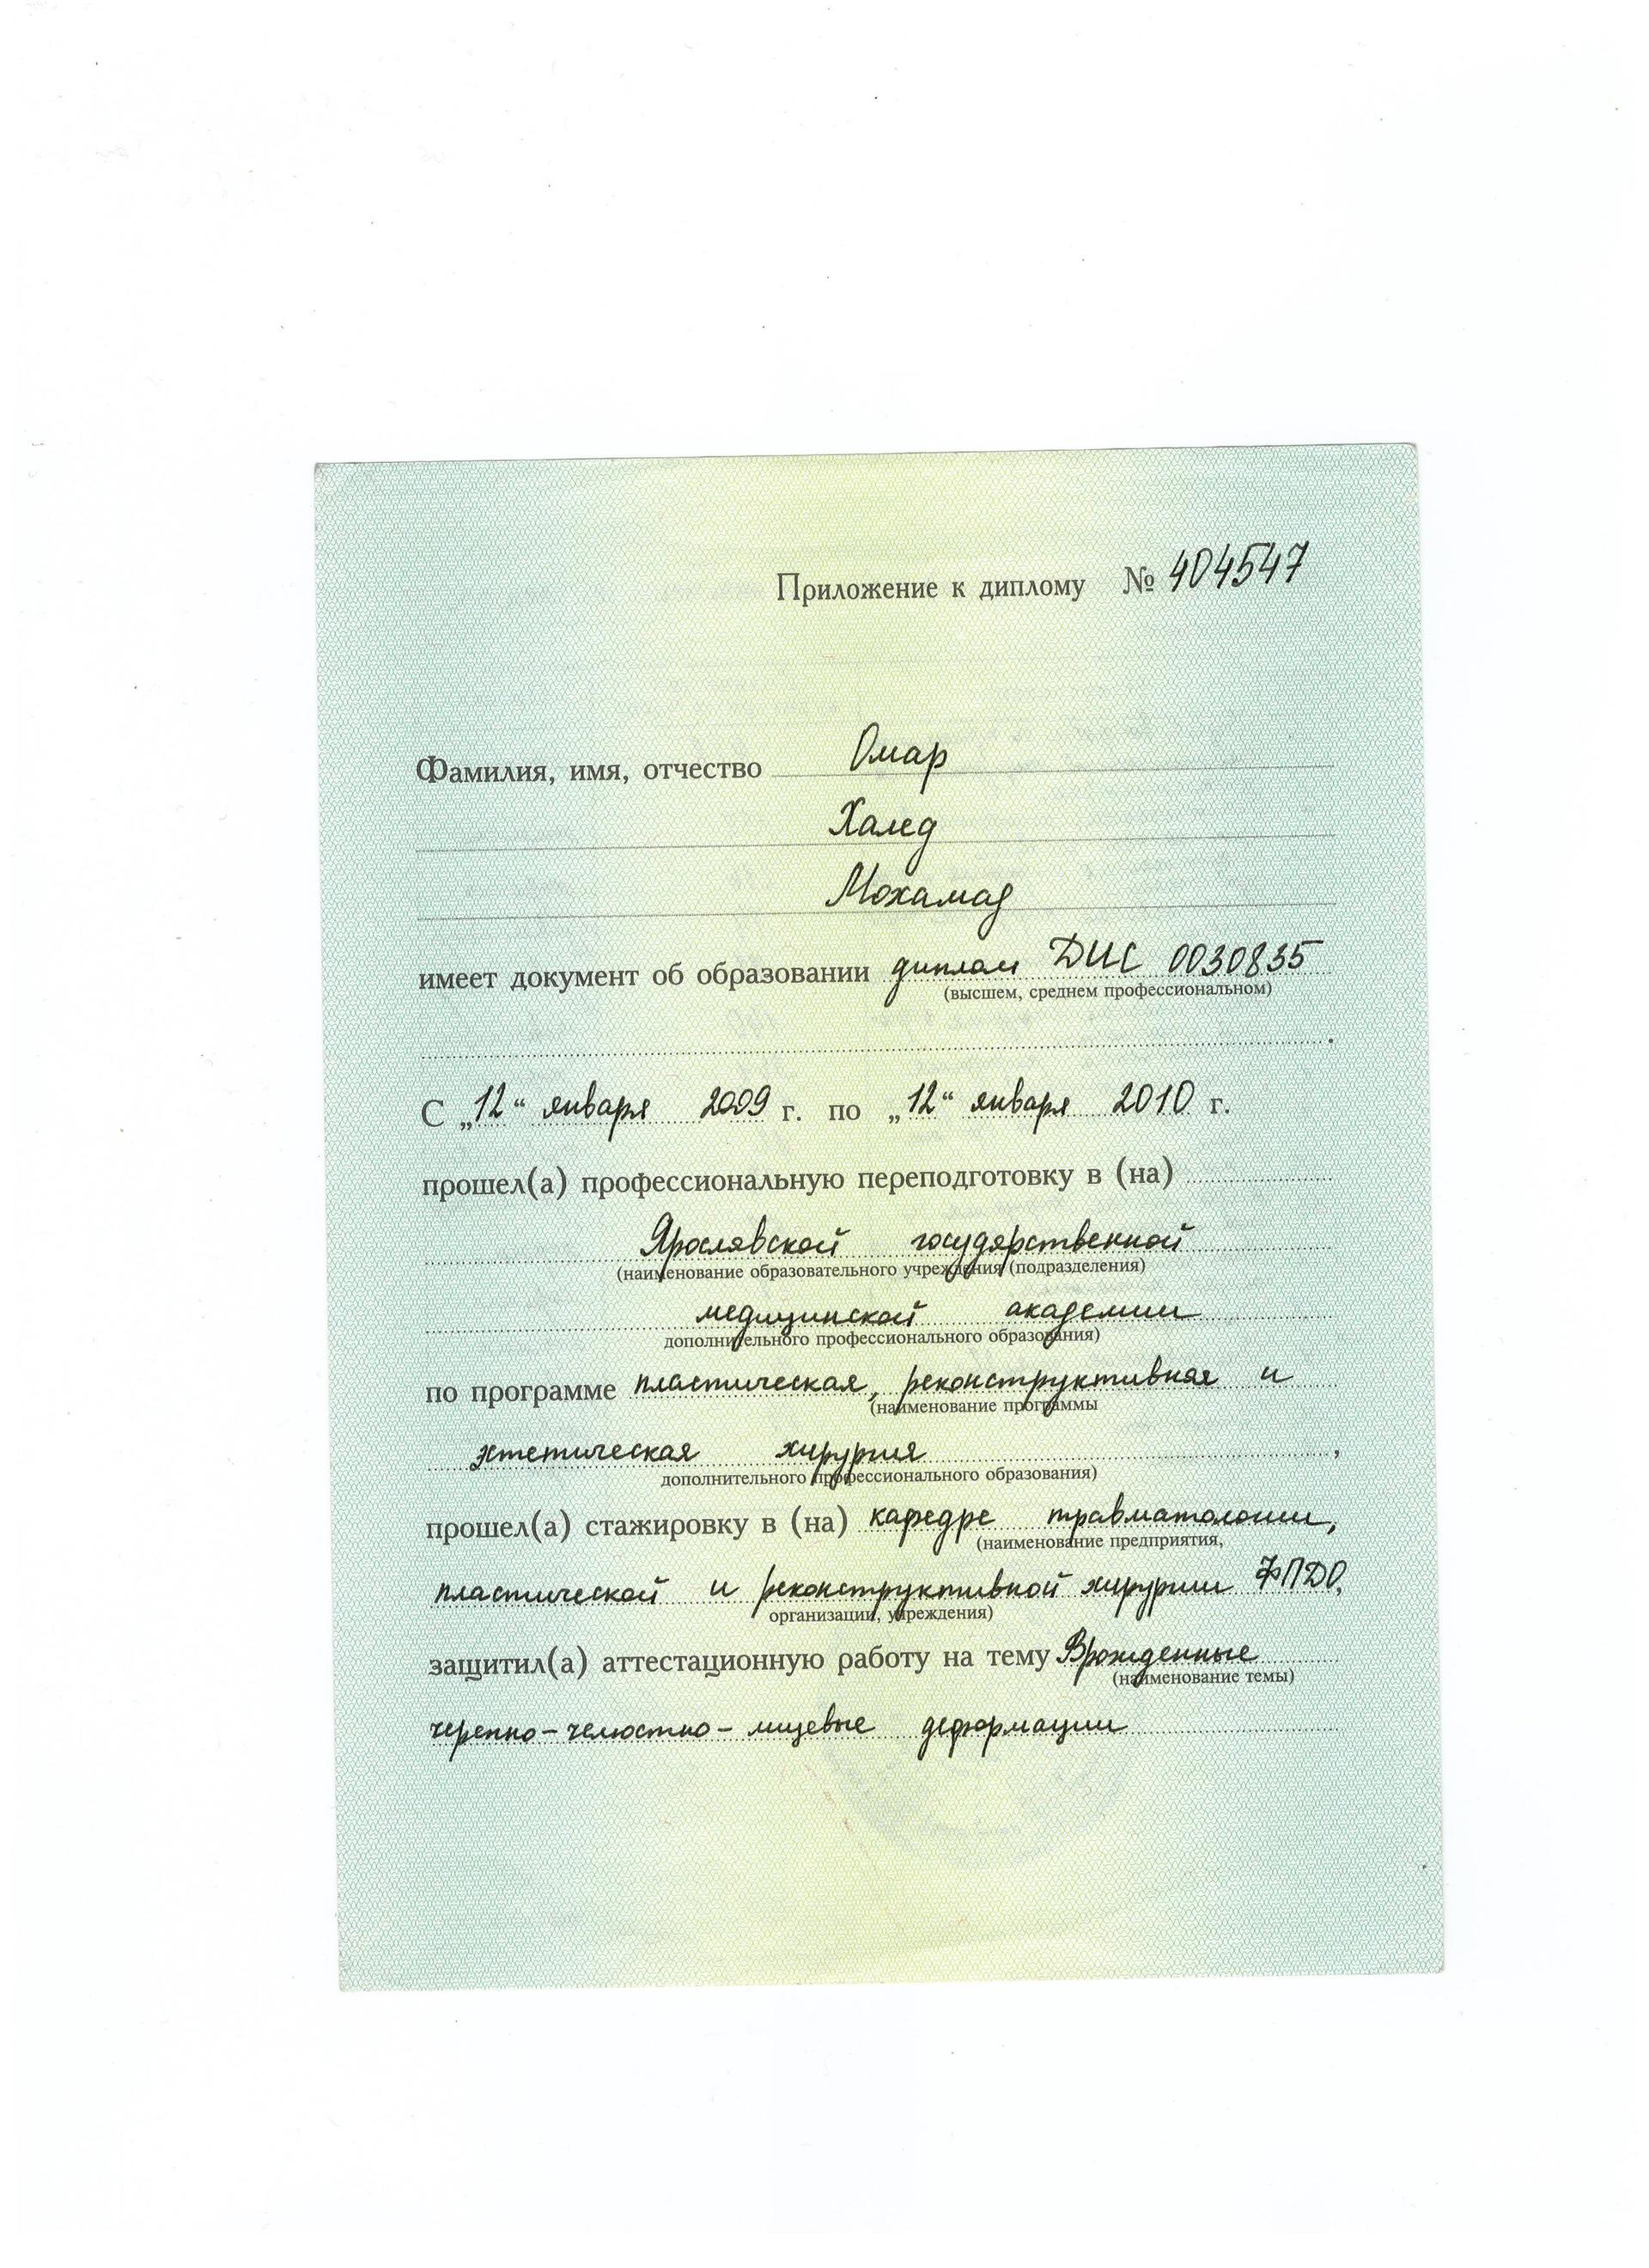 Приложение к диплому № 404547
Фамилия, имя, отчество Омар
Халед
Мохамад
имеет документ об образовании диплом ДИС 0030835
(высшем, среднем профессиональном)
С „12“ января 2009 г. по „12“ января 2010 г.
прошел(а) профессиональную переподготовку в (на)
Ярославской государственной
(наименование образовательного учреждения (подразделения)
медицинской академии
дополнительного профессионального образования)
по программе пластическая, реконструктивная и
(наименование программы
эстетическая хирургия ,
дополнительного профессионального образования)
прошел(а) стажировку в (на) кафедре травматологии,
(наименование предприятия,
пластической и реконструктивной хирургии ФПДО,
организации, учреждения)
защитил(а) аттестационную работу на тему Врожденные
(наименование темы)
черепно-челюстно-лицевые деформации